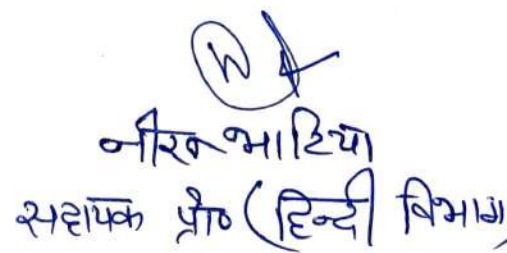 नीरज भाटिया
सहायक प्रो० (हिन्दी विभाग)